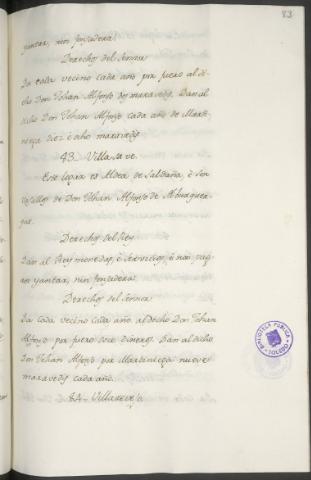 83
yantar, nin fonsadera.
Derechos del Sennor
Da cada vecino cada año por fuero al di-
cho Don Johan Alfonso dos maravedis. Dan al
dicho Don Johan Alfonso cada año de Marti-
niega diez é ocho maravedis
43. Villasave.
Este logar es Aldea de Saldaña, é son
vasallos de Don Johan Alfonso de Alburquer-
que.
Derechos del Rey
Dan al Rey monedas, é servicios, é non pag-
an yantar, nin fonsadera.
Derechos del Sennor
Da cada vecino cada año al dicho Don Johan
Alfonso por fuero doce dineros. Dan al dicho
Don Johan Alfonso por Martiniega nueve
maravedis cada año.
BIBLIOTECA PUBLICA
TOLEDO